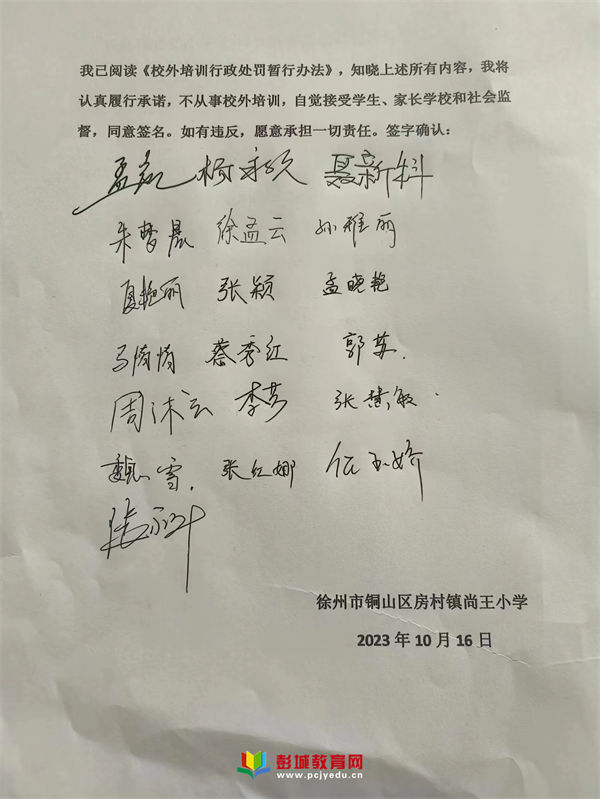 我已阅读《校外培训行政处罚暂行办法》，知晓上述所有内容，我将
认真履行承诺，不从事校外培训，自觉接受学生、家长学校和社会监
督，同意签名。如有违反，愿意承担一切责任。签字确认：
孟 杨永 聂新科
朱梦晨 徐孟云 孙雅丽
夏艳丽 张颖 孟晓艳
马倩倩 蔡秀红 郭苏
周沭云 李芬 张慧敏
魏雪 张红娜 伍玉娇
徐州市铜山区房村镇尚王小学
2023 年 10 月 16 日
彭城教育网
www.pcjyedu.cn